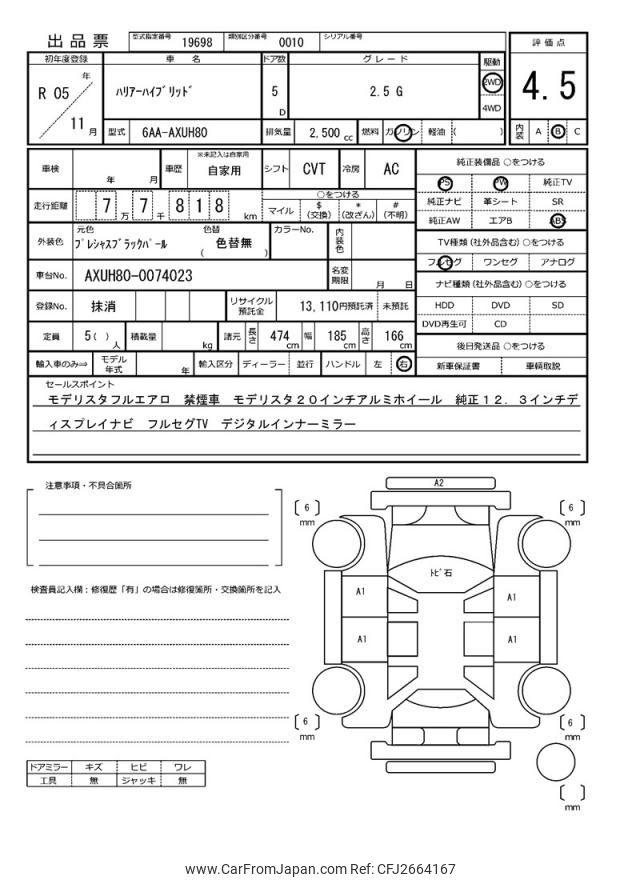 出品票
型式指定番号 19698 類別区分番号 0010 シリアル番号
初年度登録 車名 ドア数 グレード 駆動 評価点
R 05 年 11 月
ﾊﾘｱｰﾊｲﾌﾞﾘｯﾄﾞ 5 D 2.5 G 2WD 4WD 4.5
型式 6AA-AXUH80 排気量 2,500 cc 燃料 ガソリン 軽油 ( ) 内装 A B C
車検 年 月 車歴 ※未記入は自家用 自家用 シフト CVT 冷房 AC
走行距離 7 万 7 千 8 1 8 km ○をつける
マイル $ (交換) * (改ざん) # (不明)
外装色 元色 ﾌﾟﾚｼｬｽﾌﾞﾗｯｸﾊﾟｰﾙ 色替 ( 色替無 ) カラーNo. 内装色
車台No. AXUH80-0074023 名変期限 月 日
登録No. 抹消 リサイクル預託金 13,110円預託済 未預託
定員 5( ) 人 積載量 kg 諸元 長さ 474 cm 幅 185 cm 高さ 166 cm
輸入車のみ⇒ モデル年式 年 輸入区分 ディーラー 並行 ハンドル 左 右
純正装備品 ○をつける
PS PW 純正TV
純正ナビ 革シート SR
純正AW エアB ABS
TV種類 (社外品含む) ○をつける
フルセグ ワンセグ アナログ
ナビ種類 (社外品含む) ○をつける
HDD DVD SD
DVD再生可 CD
後日発送品 ○をつける
新車保証書 車輌取説
セールスポイント
モデリスタフルエアロ 禁煙車 モデリスタ20インチアルミホイール 純正12.3インチデ
ィスプレイナビ フルセグTV デジタルインナーミラー
注意事項・不具合箇所
検査員記入欄：修復歴「有」の場合は修復箇所・交換箇所を記入
ドアミラー キズ ヒビ ワレ
工具 無 ジャッキ 無
A2
( 6 ) mm ( 6 ) mm
ﾄﾋﾞ石
A1 A1
A1 A1
( 6 ) mm ( 6 ) mm
( ) mm
www.CarFromJapan.com Ref: CFJ2664167